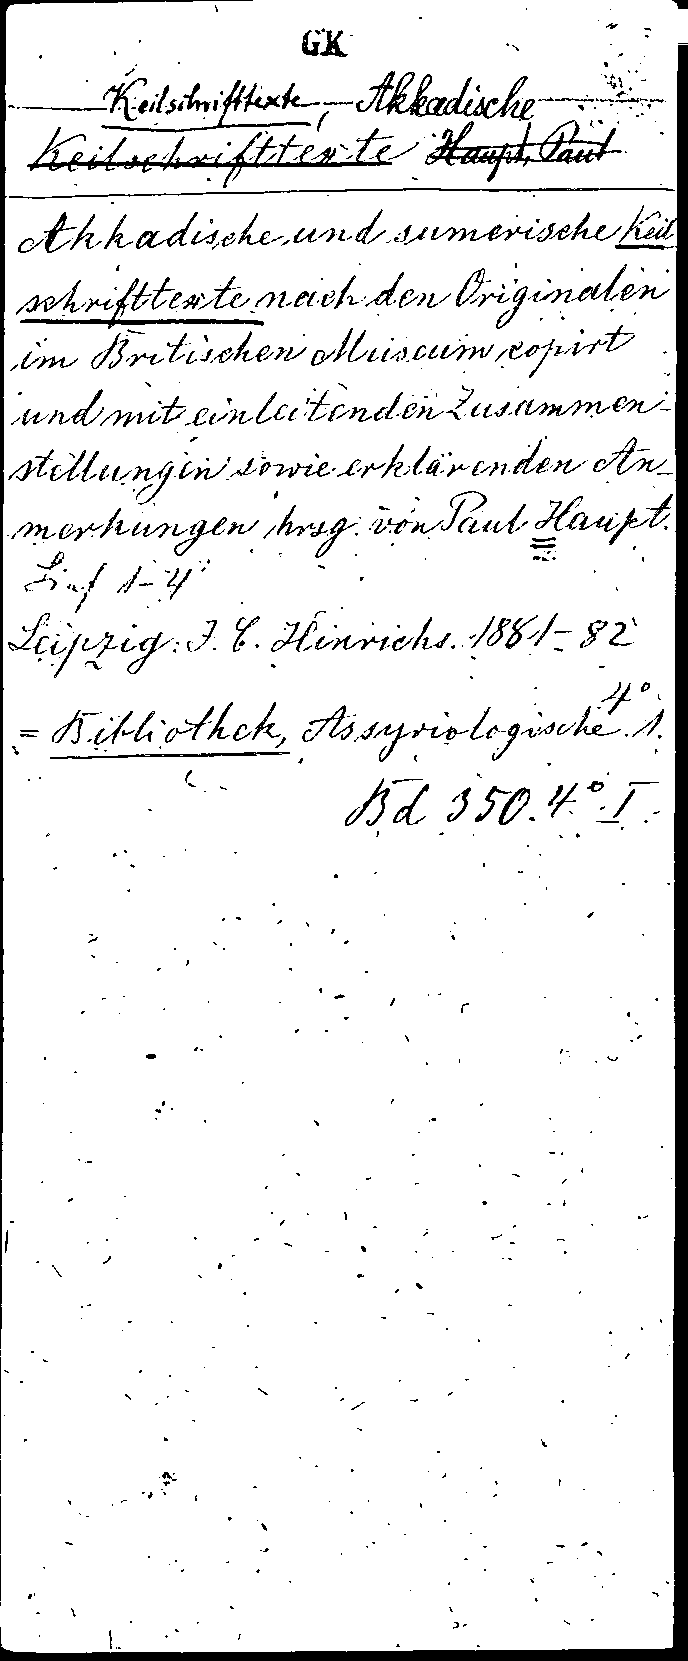 GK
Keilschrifttexte, Akkadische
Keilschrifttexte Haupt, Paul
Akkadische und sumerische Keil
schrifttexte nach den Originalen
im Britischen Museum copirt
und mit einleitenden Zusammen-
stellungen sowie erklärenden An-
merkungen hrsg. von Paul Haupt.
Lief 1-4
Leipzig: J. C. Hinrichs. 1881-82
4°
= Bibliothek, Assyriologische. 1.
Bd 350. 4° I